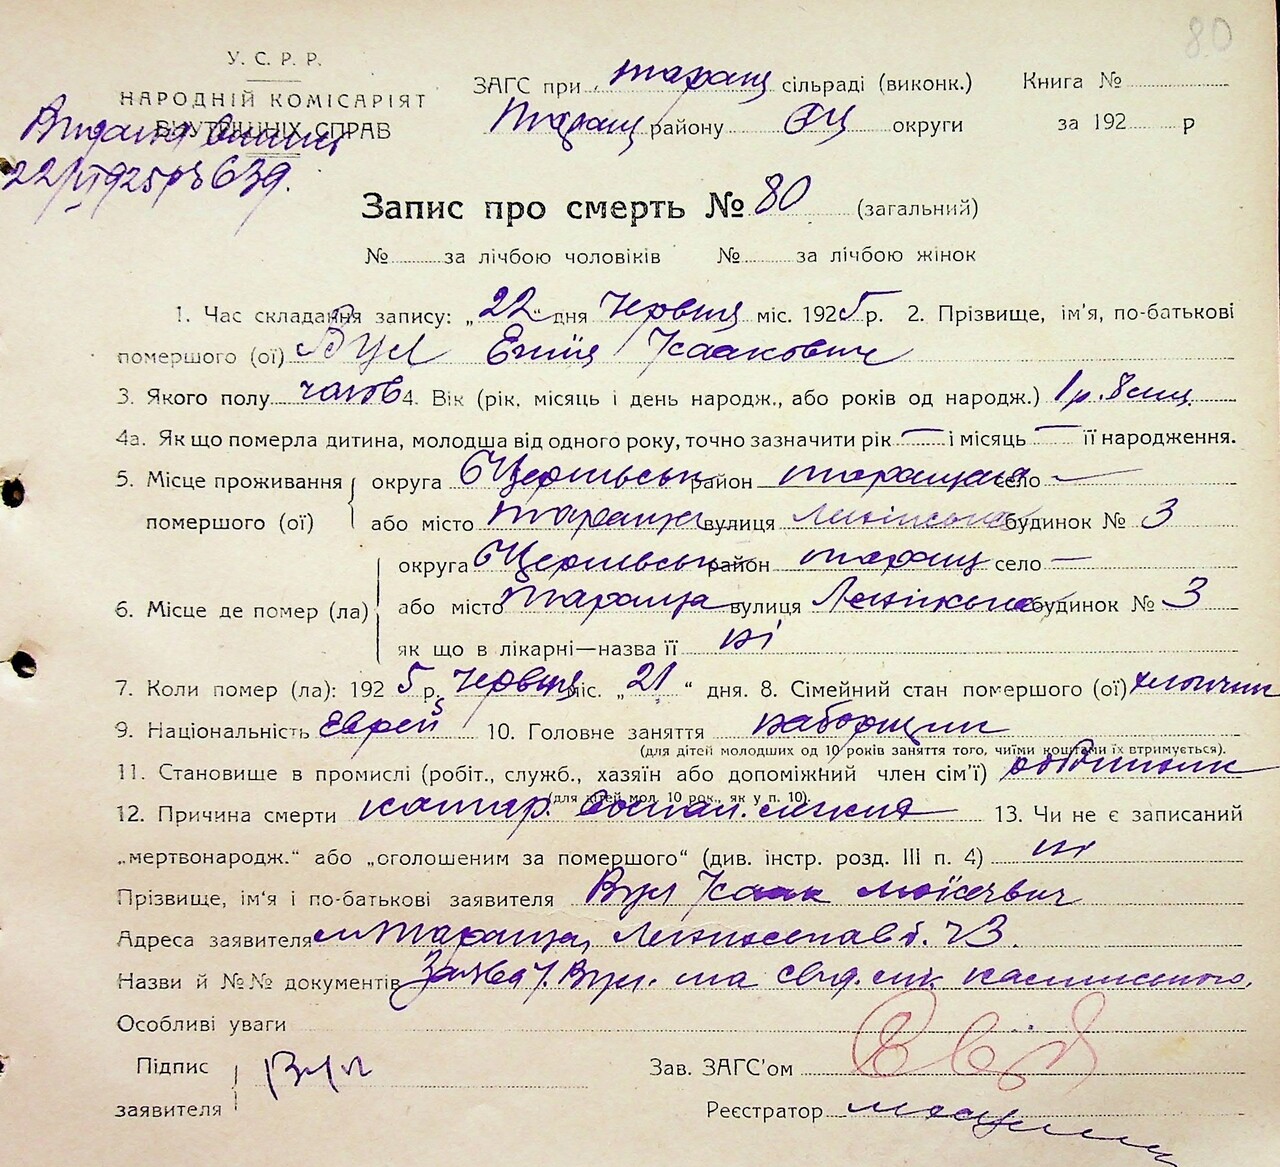 80
У. С. Р. Р.
НАРОДНІЙ КОМІСАРІЯТ
ВНУТРІШНІХ СПРАВ
22/VI 925 р № 639.
ЗАГС при Таращ сільраді (виконк.) Книга №
Таращ району БЦ округи за 192 р
Запис про смерть № 80 (загальний)
№ за лічбою чоловіків № за лічбою жінок
1. Час складання запису: „22“ дня Червня міс. 1925 р. 2. Прізвище, ім'я, по-батькові
помершого (ої) Вул Исаакович
3. Якого полу чолов 4. Вік (рік, місяць і день народж., або років од народж.) 1 р. 8 міц.
4а. Як що померла дитина, молодша від одного року, точно зазначити рік — і місяць — її народження.
5. Місце проживання помершого (ої) округа БЦерківськ район Таращан село —
або місто Тараща вулиця Ленінська будинок № 3
6. Місце де помер (ла) округа БЦерківськ район Таращ село —
або місто Тараща вулиця Ленінська будинок № 3
як що в лікарні—назва її ні
7. Коли помер (ла): 1925 р. Червня міс. „21“ дня. 8. Сімейний стан помершого (ої) хлопчик
9. Національність Еврей 10. Головне заняття наборщик
(для дітей молодших од 10 років заняття того, чиїми коштами їх втримується).
11. Становище в промислі (робіт., служб., хазяїн або допоміжний член сім'ї)
(для дітей мол. 10 рок., як у п. 10).
12. Причина смерти катар. воспал. легких 13. Чи не є записаний
„мертвонародж.“ або „оголошеним за помершого“ (див. інстр. розд. III п. 4) ні
Прізвище, ім'я і по-батькові заявителя Вул Исаак Моїсеєвич
Адреса заявителя м Тараща, Ленинская ч 3.
Назви й №№ документів Заява Вул. та свід. лік.
Особливі уваги
Підпис заявителя Вул
Зав. ЗАГС'ом
Реєстратор